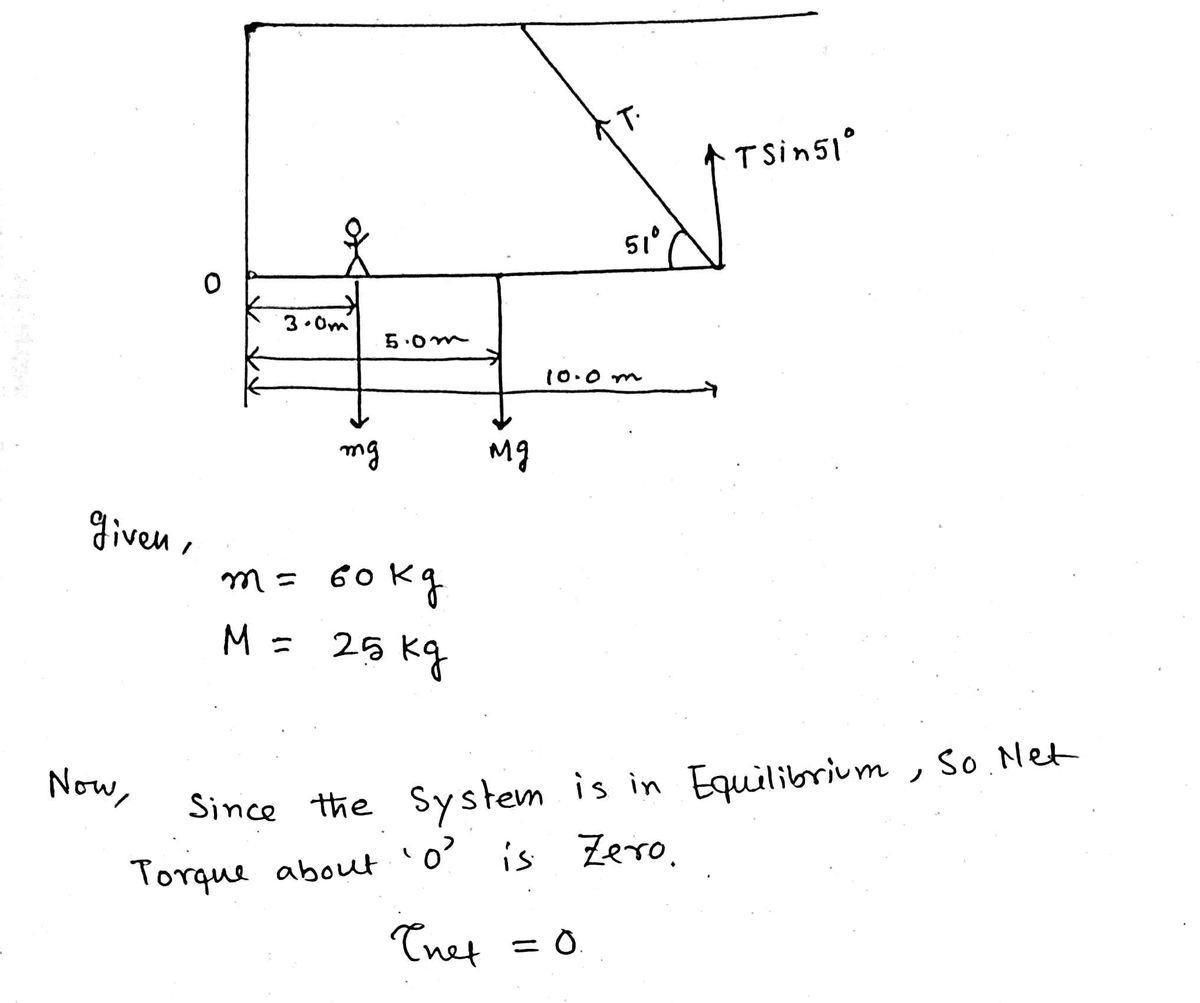 T.
T Sin51°
51°
O
3.0m
5.0m
10.0 m
mg
Mg
Given,
m = 60 Kg
M = 25 Kg
Now, Since the System is in Equilibrium, So Net
Torque about 'O' is Zero.
τnet = 0